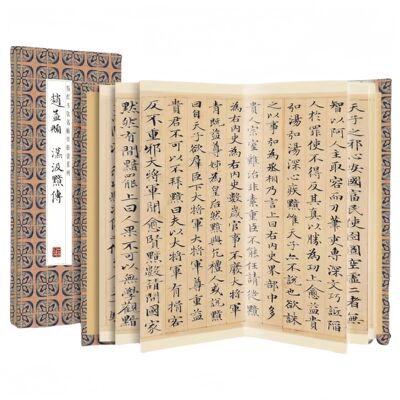 趙孟頫 漢汲黯傳
天子之邪心安國富民使囹圄空虛二者無
智以阿人主取容而刀筆吏專深文巧詆陷
人於罪使不得反其真以勝為功上愈益貴
弘湯弘湯深心疾黯唯天子亦不說也欲誅
之以事弘為丞相乃言上曰右內史界部中多
貴人宗室難治非素重臣不能任請徙黯
為右內史數歲官事不廢大將軍
青既益尊姊為皇后然黯與亢禮人或說黯
曰自天子欲群臣下大將軍大將軍尊重益
貴君不可以不拜黯曰夫以大將軍有揖客
反不重邪大將軍聞愈賢黯數請問國家
默然有間黯罷上曰人果不可以無學觀黯